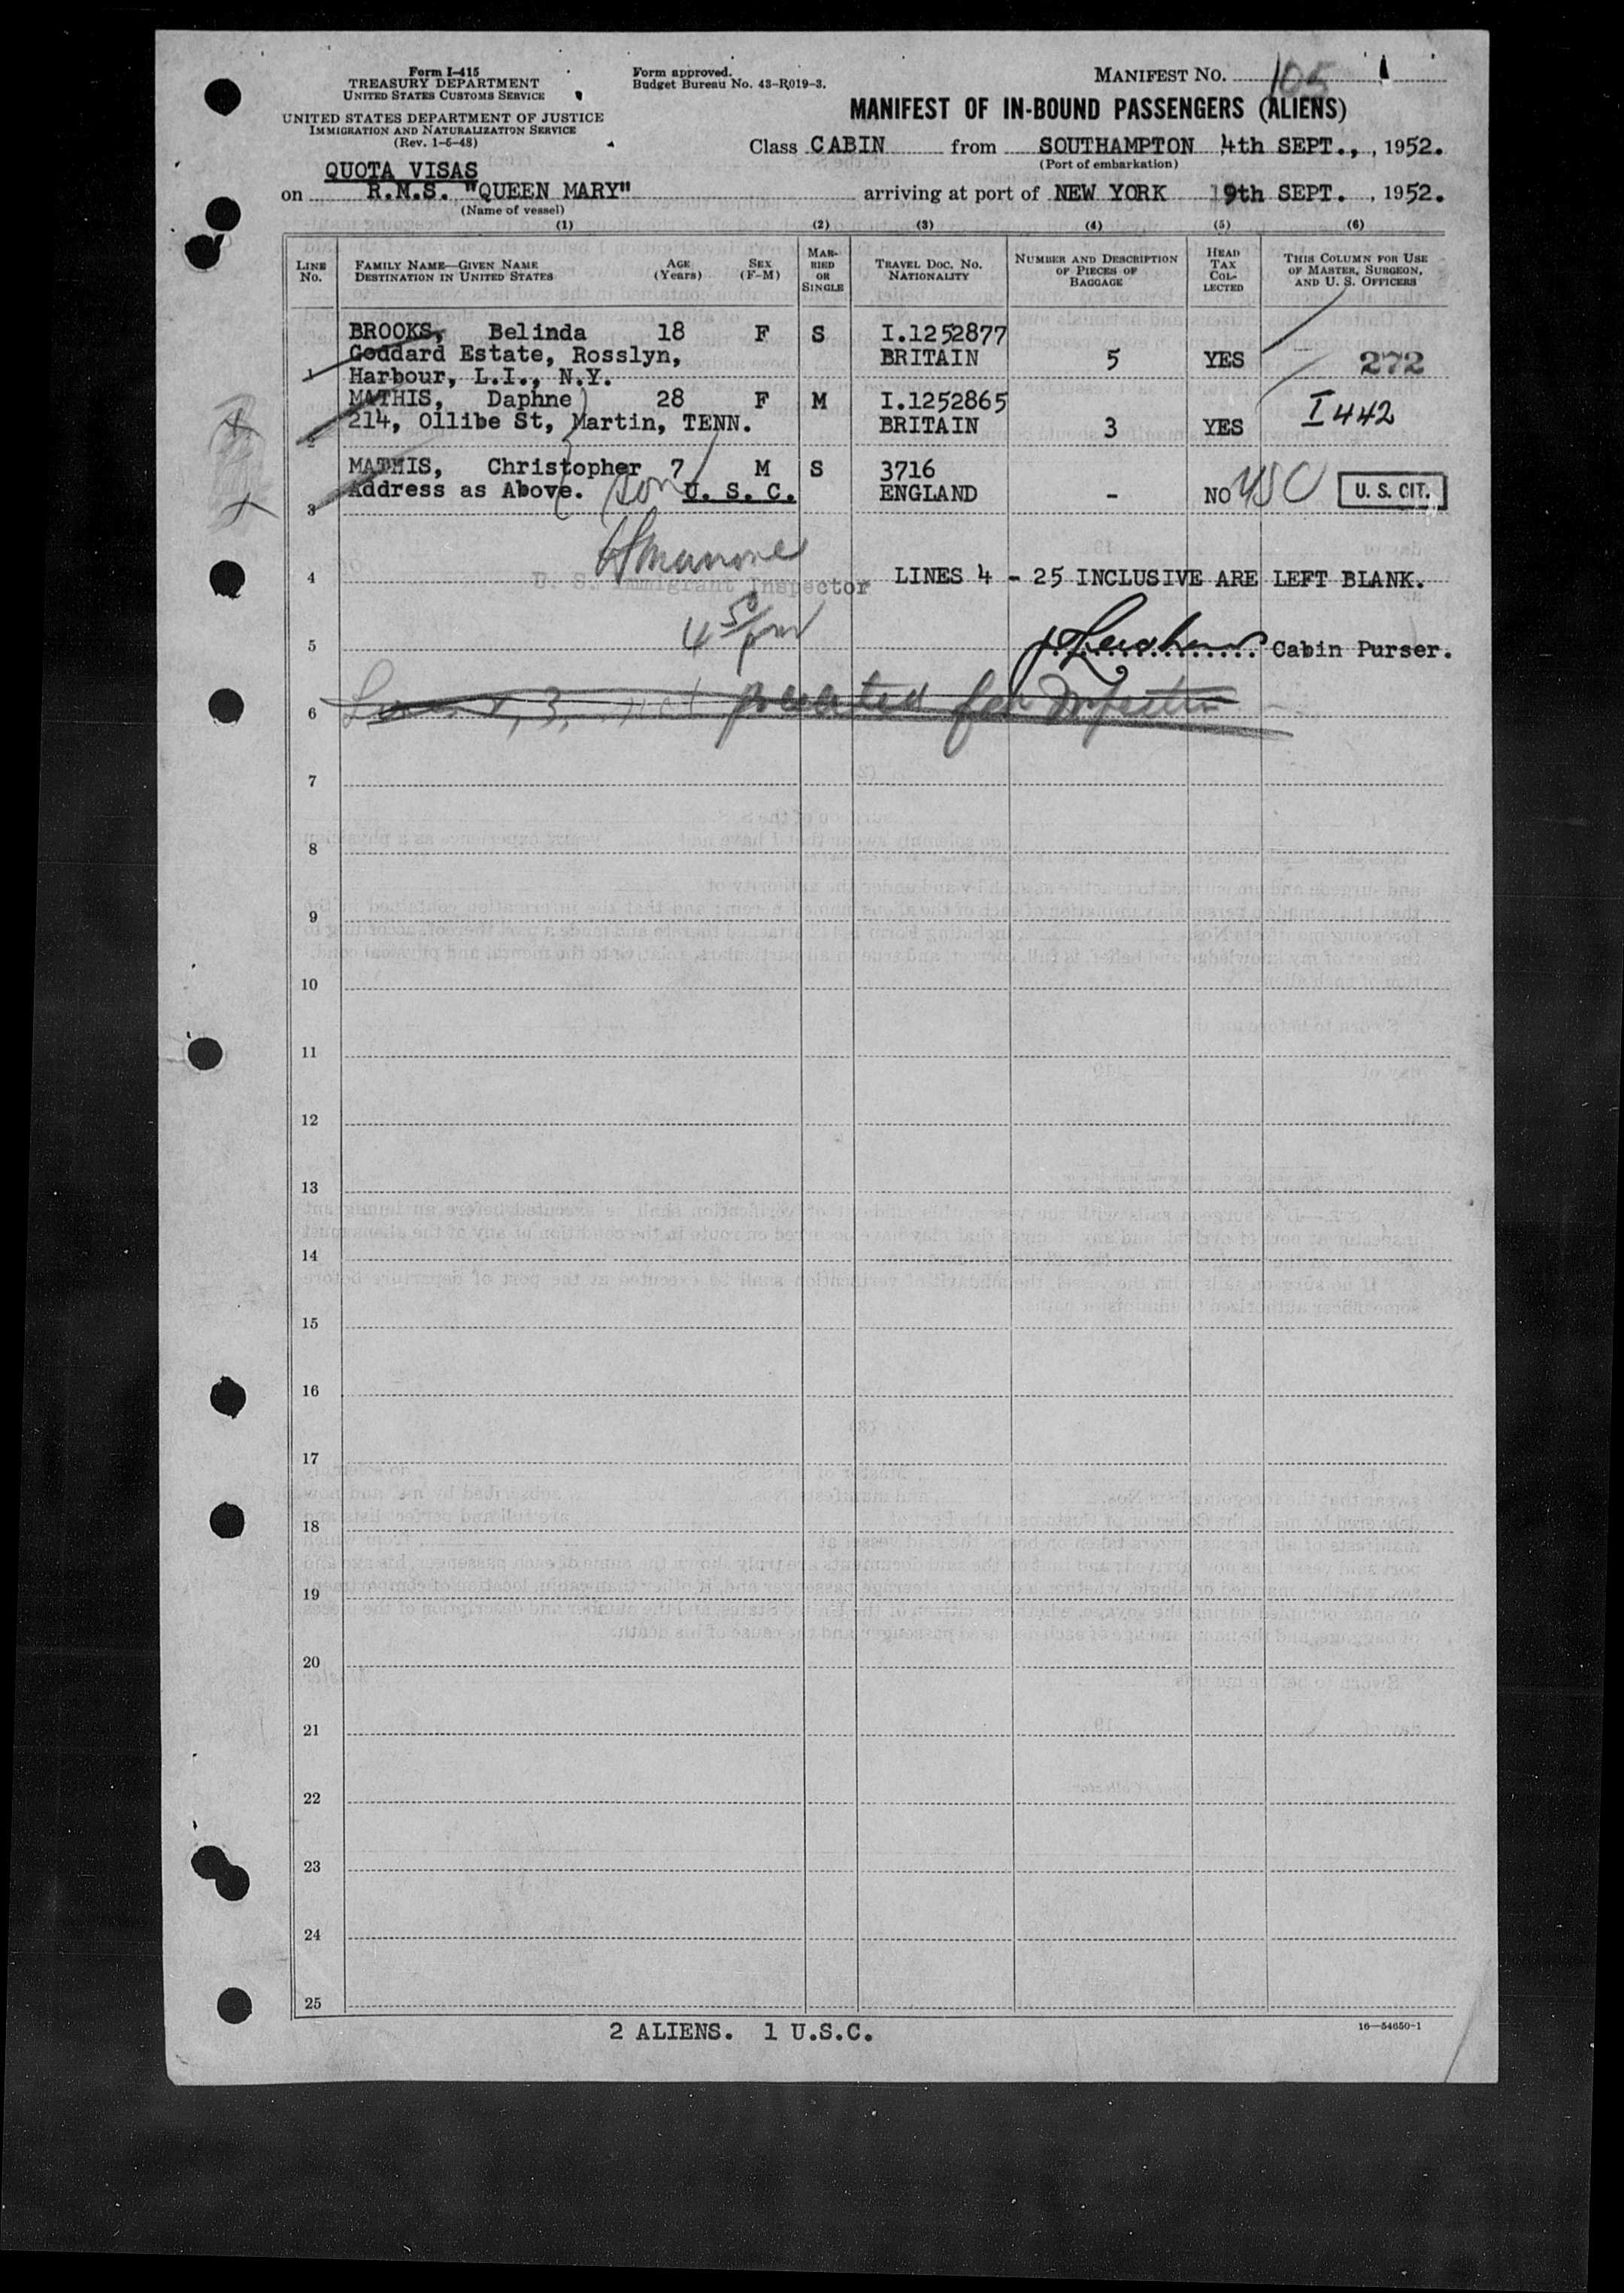 Form I-415
TREASURY DEPARTMENT
UNITED STATES CUSTOMS SERVICE
UNITED STATES DEPARTMENT OF JUSTICE
IMMIGRATION AND NATURALIZATION SERVICE
(Rev. 1-6-48)
Form approved.
Budget Bureau No. 43-R019-3.
MANIFEST NO. 105 1
MANIFEST OF IN-BOUND PASSENGERS (ALIENS)
Class CABIN from SOUTHAMPTON 4th SEPT., , 1952.
(Port of embarkation)
QUOTA VISAS
on R.M.S. "QUEEN MARY" arriving at port of NEW YORK 9th SEPT. , 1952.
(Name of vessel)
(1) (2) (3) (4) (5) (6)
LINE NO. FAMILY NAME—GIVEN NAME DESTINATION IN UNITED STATES AGE (Years) SEX (F-M) MARRIED OR SINGLE TRAVEL DOC. NO. NATIONALITY NUMBER AND DESCRIPTION OF PIECES OF BAGGAGE HEAD TAX COLLECTED THIS COLUMN FOR USE OF MASTER, SURGEON, AND U. S. OFFICERS
BROOKS, Belinda 18 F S I.1252877
Goddard Estate, Rosslyn, BRITAIN 5 YES 272
1 Harbour, L.I., N.Y.
MATHIS, Daphne 28 F M I.1252865 I442
214, Ollibe St, Martin, TENN. BRITAIN 3 YES
2
MATHIS, Christopher 7 M S 3716
Address as Above. son U. S. C. ENGLAND - NO USC U. S. CIT.
3
4 LINES 4 - 25 INCLUSIVE ARE LEFT BLANK.
U. S. Immigrant Inspector
4 50/pm
5 Cabin Purser.
6 3, not presented for Inspection
7
8
9
10
11
12
13
14
15
16
17
18
19
20
21
22
23
24
25
2 ALIENS. 1 U.S.C.
16—54650-1